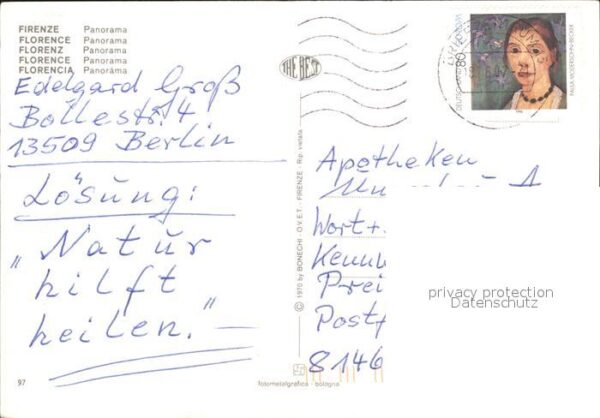 FIRENZE Panorama
FLORENCE Panorama
FLORENZ Panorama
FLORENCE Panorama
FLORENCIA Panoráma
Edelgard Groß
Bollestr. 4
13509 Berlin
Lösung:
„Natur
hilft
heilen."
97
THE BEST
© 1970 by BONECHI - O.V.E.T. - FIRENZE - Rip. vietata
fotometalgrafica - bologna
80
DEUTSCHE
PAULA MODERSOHN-BECKER
Apotheken
Wort +
Kennw
Prei
Post
8146
privacy protection
Datenschutz